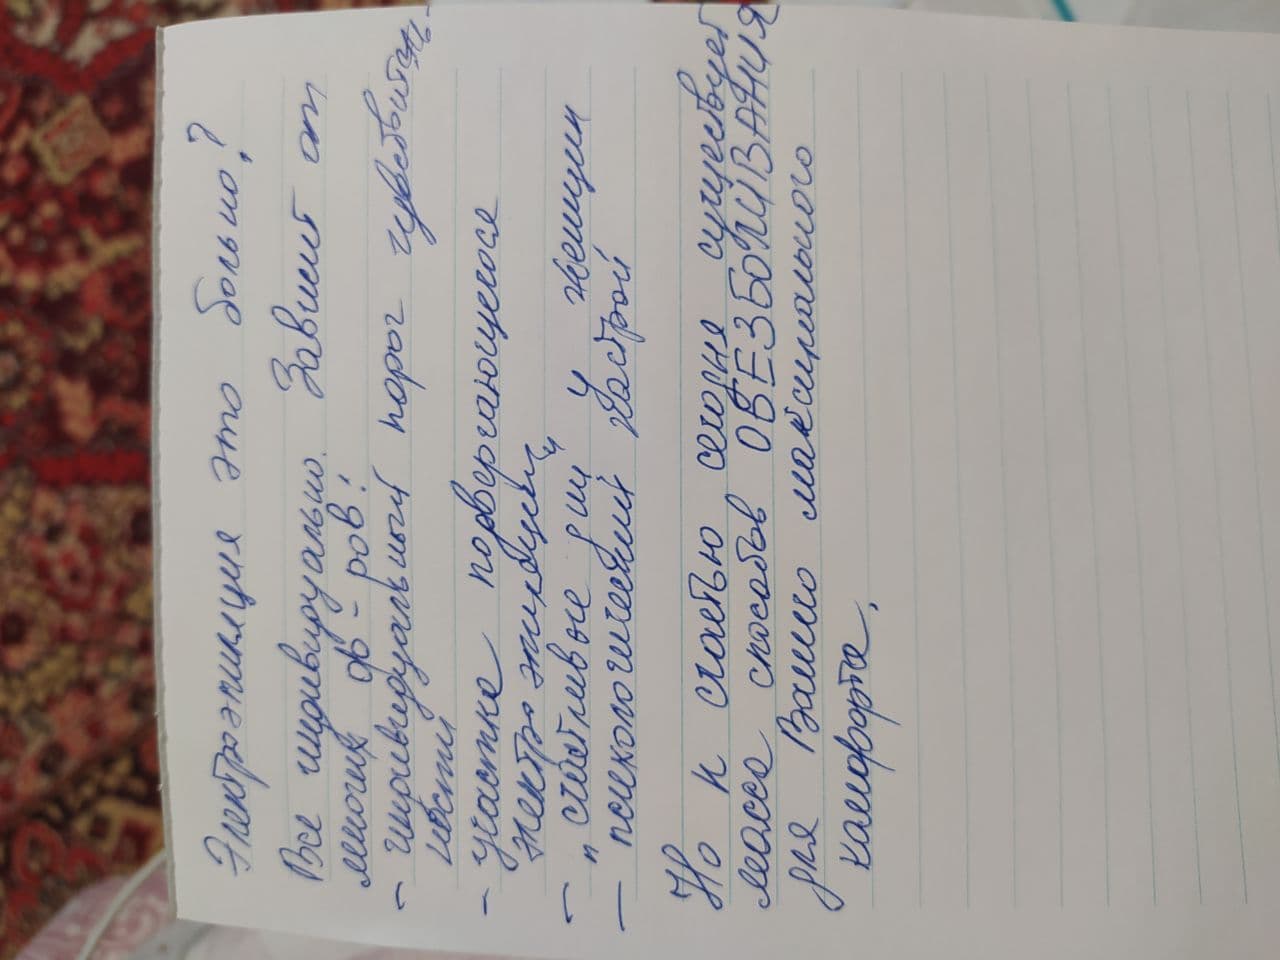 Электроэпиляция это больно?
Все индивидуально. Зависит от
многих ф-ров:
- индивидуальный порог чувствитель-
ности
- участка подвергающегося
электроэпиляции
- "счастливые дни" у женщин
- психологический настрой
Но к счастью сегодня существует
масса способов ОБЕЗБОЛИВАНИЯ
для Вашего максимального
комфорта.